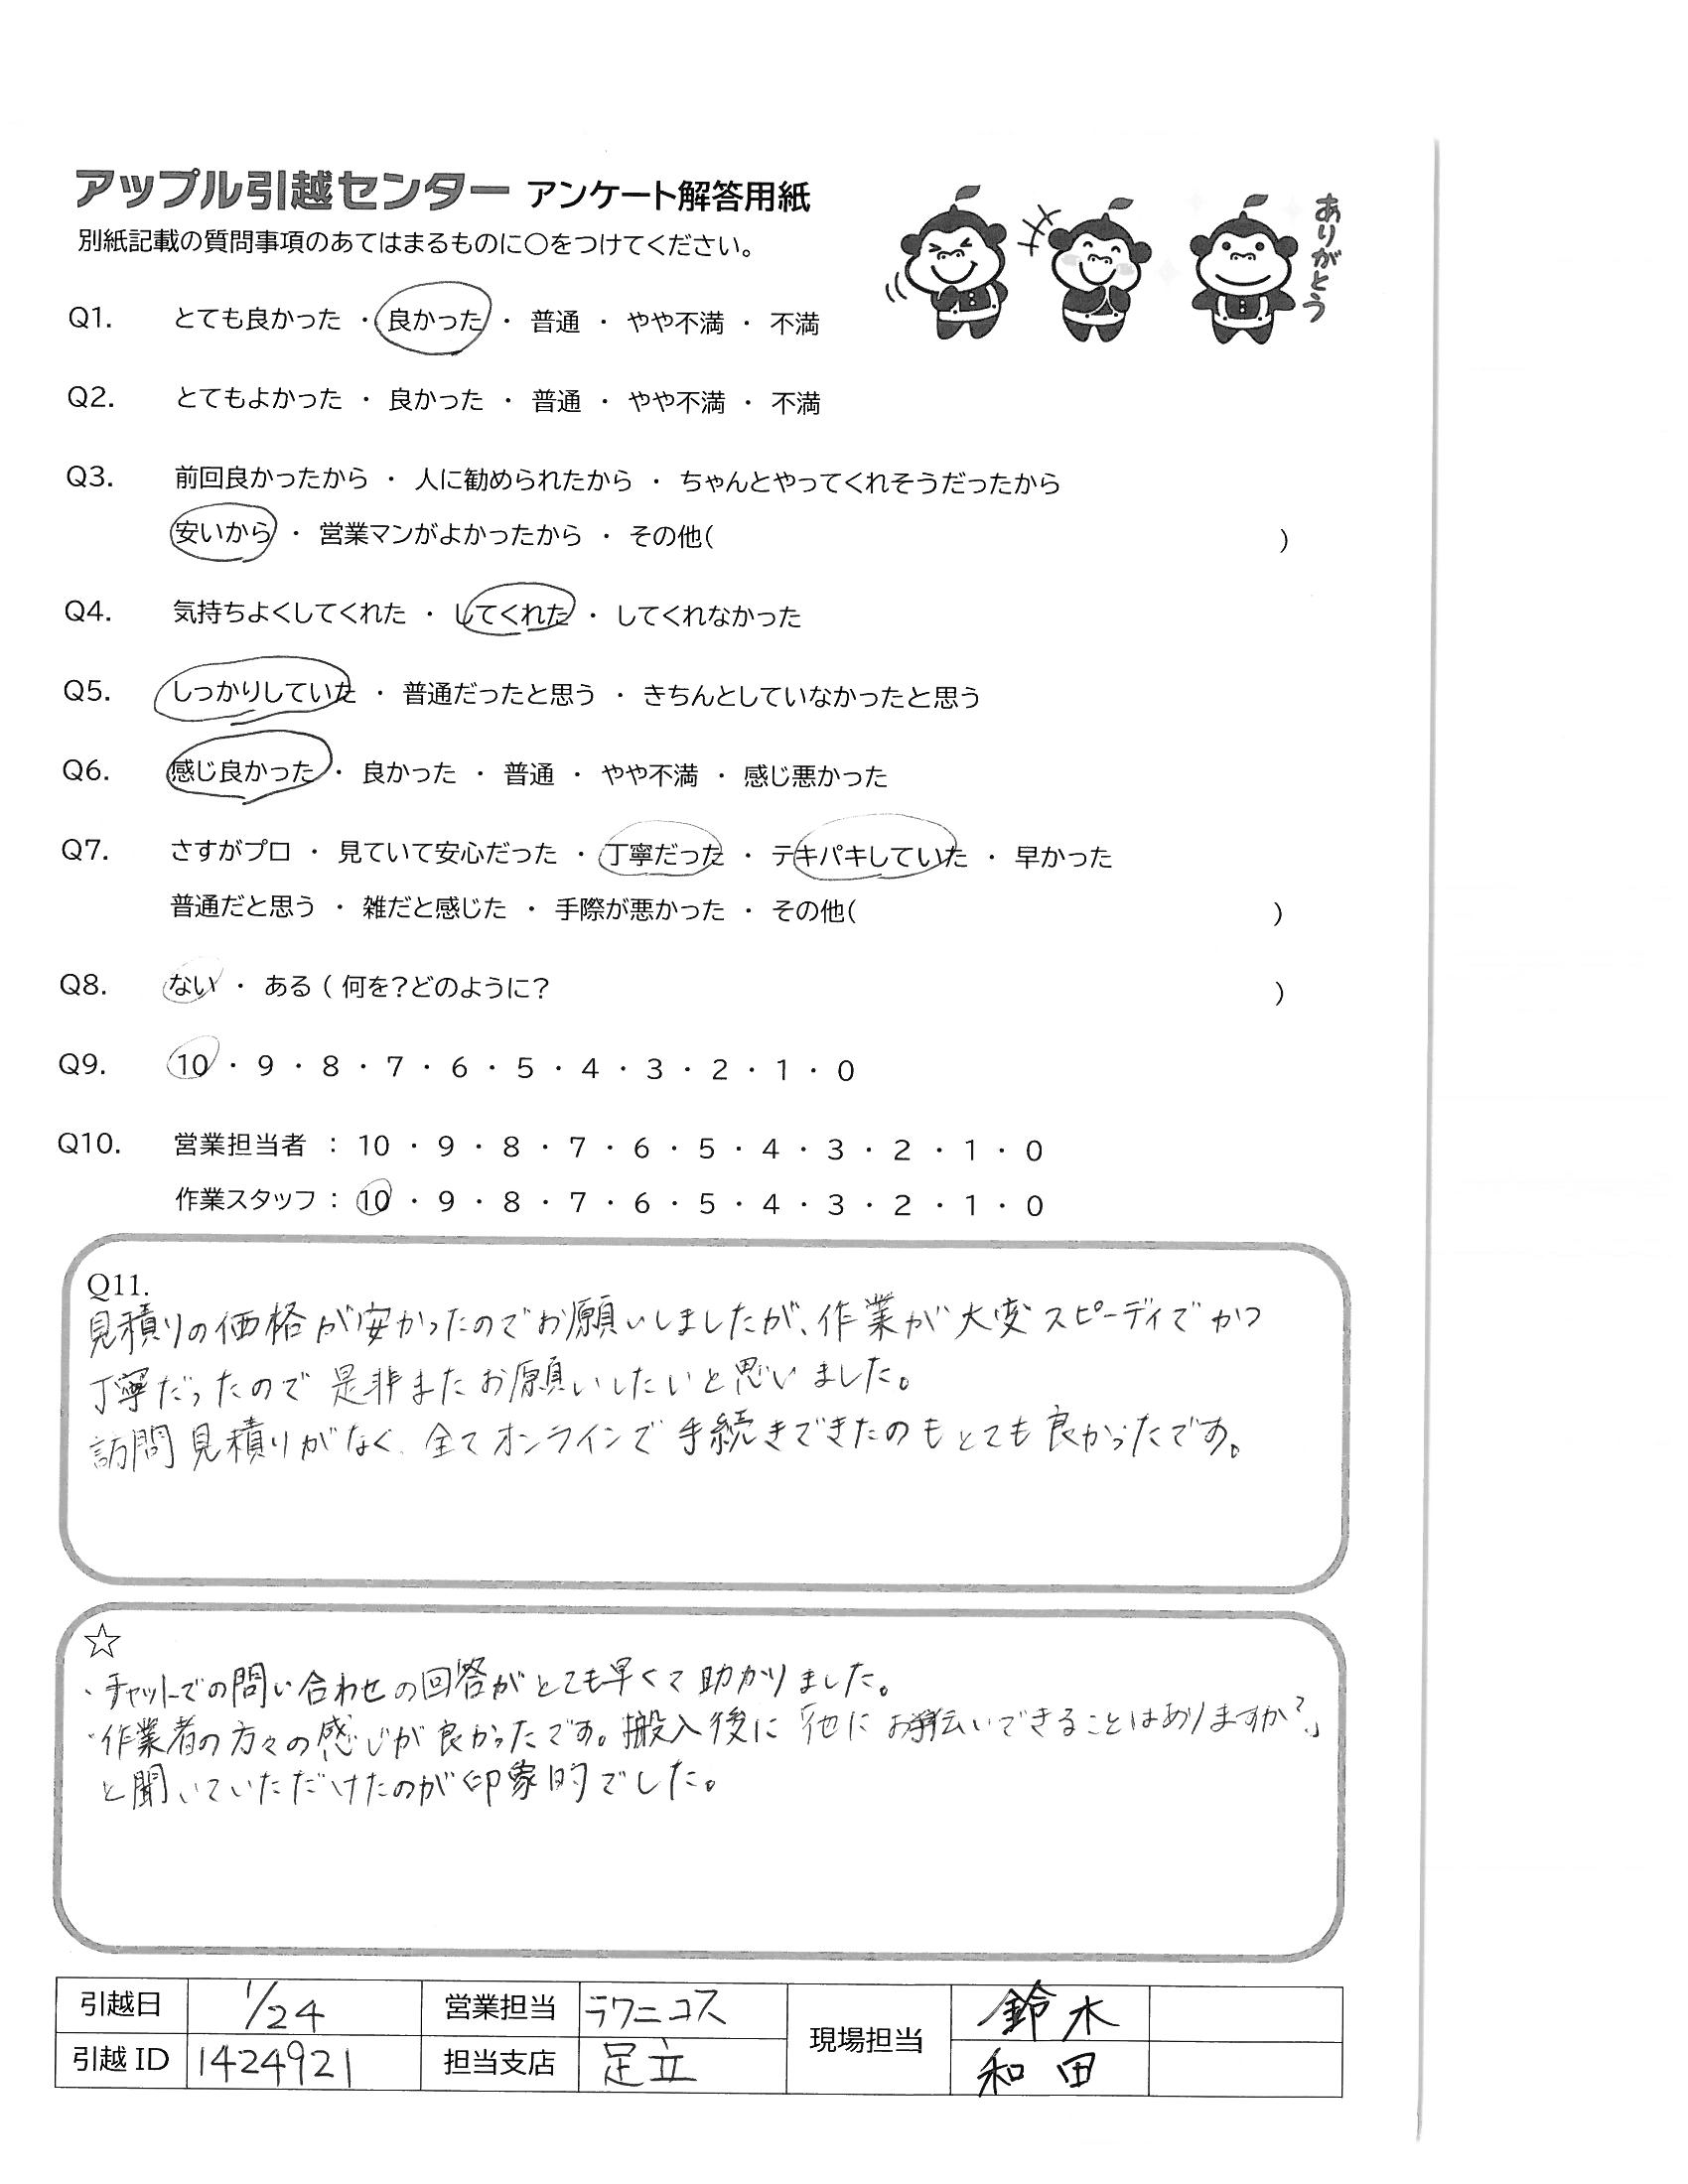 アップル引越センター アンケート解答用紙
別紙記載の質問事項のあてはまるものに○をつけてください。
ありがとう
Q1. とても良かった ・ 良かった ・ 普通 ・ やや不満 ・ 不満
Q2. とてもよかった ・ 良かった ・ 普通 ・ やや不満 ・ 不満
Q3. 前回良かったから ・ 人に勧められたから ・ ちゃんとやってくれそうだったから
安いから ・ 営業マンがよかったから ・ その他( )
Q4. 気持ちよくしてくれた ・ してくれた ・ してくれなかった
Q5. しっかりしていた ・ 普通だったと思う ・ きちんとしていなかったと思う
Q6. 感じ良かった ・ 良かった ・ 普通 ・ やや不満 ・ 感じ悪かった
Q7. さすがプロ ・ 見ていて安心だった ・ 丁寧だった ・ テキパキしていた ・ 早かった
普通だと思う ・ 雑だと感じた ・ 手際が悪かった ・ その他( )
Q8. ない ・ ある ( 何を?どのように? )
Q9. 10 ・ 9 ・ 8 ・ 7 ・ 6 ・ 5 ・ 4 ・ 3 ・ 2 ・ 1 ・ 0
Q10. 営業担当者 : 10 ・ 9 ・ 8 ・ 7 ・ 6 ・ 5 ・ 4 ・ 3 ・ 2 ・ 1 ・ 0
作業スタッフ : 10 ・ 9 ・ 8 ・ 7 ・ 6 ・ 5 ・ 4 ・ 3 ・ 2 ・ 1 ・ 0
Q11.
見積りの価格が安かったのでお願いしましたが、作業が大変スピーディでかつ
丁寧だったので是非またお願いしたいと思いました。
訪問見積りがなく、全てオンラインで手続きできたのもとても良かったです。
☆
・チャットでの問い合わせの回答がとても早くて助かりました。
・作業者の方々の感じが良かったです。搬入後に「他にお手伝いできることはありますか?」
と聞いていただけたのが印象的でした。
引越日 1/24 営業担当 ラクニコス 現場担当 鈴木
引越ID 1424921 担当支店 足立 和田